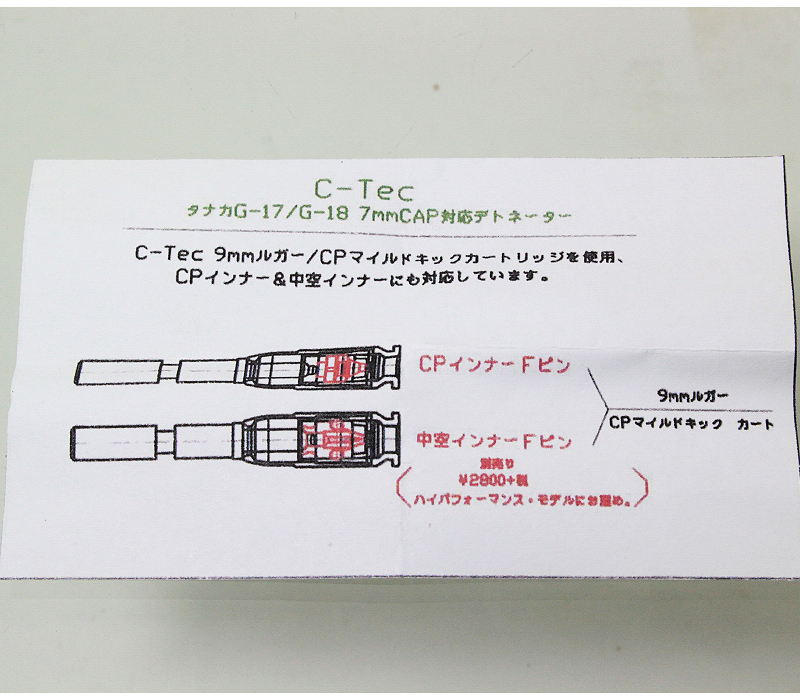 C-Tec
タナカG-17/G-18 7mmCAP対応デトネーター
C-Tec 9mmルガー/CPマイルドキックカートリッジを使用、
CPインナー&中空インナーにも対応しています。
CPインナーFピン
9mmルガー
CPマイルドキック カート
中空インナーFピン
別売り
¥2800+税
ハイパフォーマンス・モデルにお薦め。